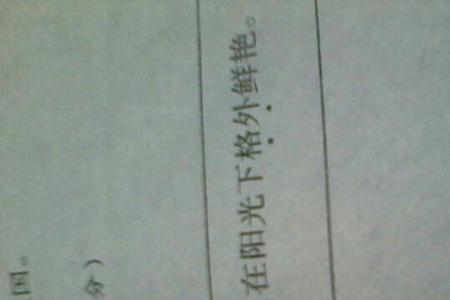 国。
分）
在阳光下格外鲜艳。